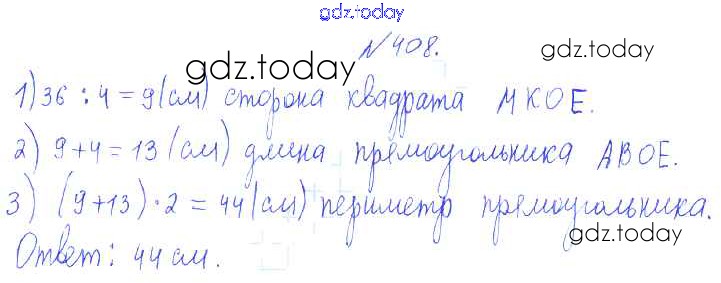 gdz.today
№408.
gdz.today
gdz.today
1) 36 : 4 = 9 (см) сторона квадрата МКОЕ.
2) 9+4 = 13 (см) длина прямоугольника АВОЕ.
3) (9+13)·2 = 44 (см) периметр прямоугольника.
gdz.today
Ответ: 44 см.